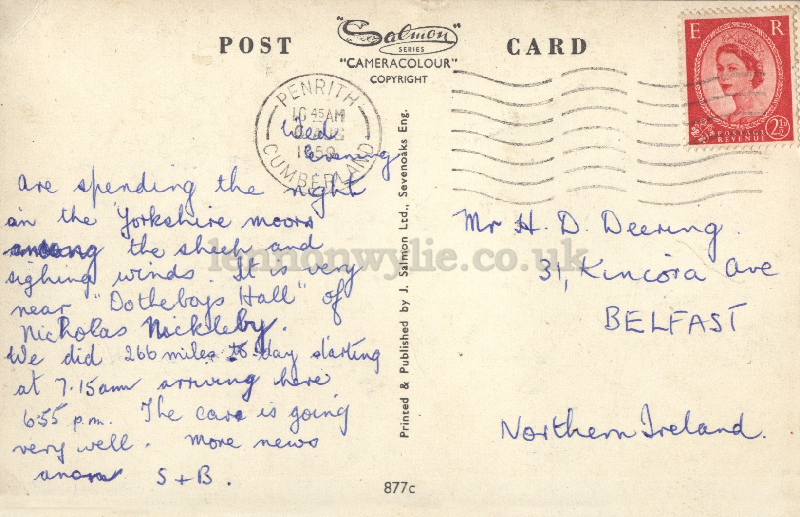 POST CARD
"Salmon"
SERIES
"CAMERACOLOUR"
COPYRIGHT
E R
POSTAGE
REVENUE
2½D
PENRITH
10 45AM
1959
CUMBERLAND
Wed
Evening
Are spending the night
in the Yorkshire moors
among the sheep and
sighing winds. It is very
near "Dotheboys Hall" of
Nicholas Nickleby.
We did 266 miles to-day starting
at 7.15am arriving here
6.55 p.m. The car is going
very well. More news
anon S + B.
Printed & Published by J. Salmon Ltd., Sevenoaks Eng.
Mr H. D. Deering.
31, Kincora Ave
BELFAST
Northern Ireland.
877c
lennonwylie.co.uk